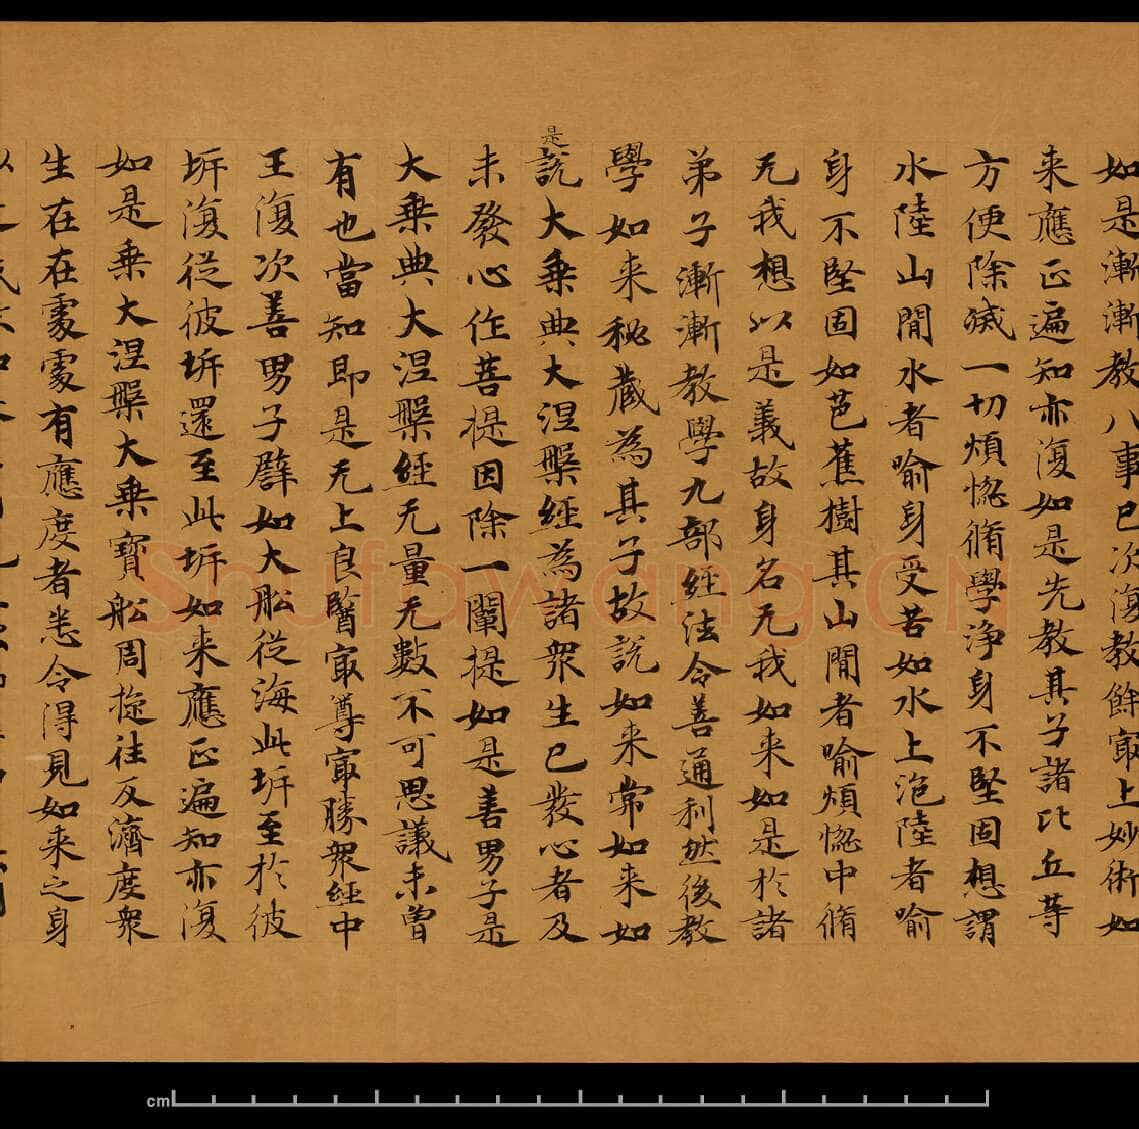 如是漸漸教八事已次復教餘㝡上妙術如
来應正遍知亦復如是先教其子諸比丘等
方便除滅一切煩惚脩學淨身不堅固想謂
水陸山間水者喻身受苦如水上泡陸者喻
身不堅固如芭蕉樹其山間者喻煩惚中脩
无我想以是義故身名无我如来如是於諸
弟子漸漸教學九部經法令善通利然後教
學如来秘藏為其子故說如来常如来如
是說大乗典大涅槃經為諸衆生已發心者及
未發心作菩提因除一闡提如是善男子是
大乗典大涅槃經无量无數不可思議未曾
有也當知即是无上良醫㝡尊㝡勝衆經中
王復次善男子譬如大船從海此坼至於彼
坼復從彼坼還至此坼如来應正遍知亦復
如是乗大涅槃大乗寶船周旋往反濟度衆
生在在處處有應度者悉令得見如来之身
Shufawang.CN
cm